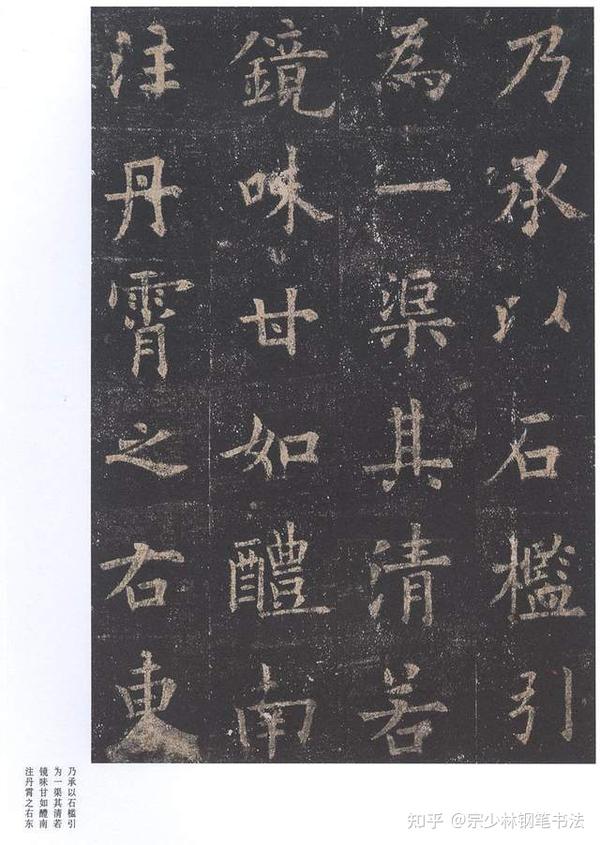 乃承以石檻引
為一渠其清若
鏡味甘如醴南
注丹霄之右東
乃承以石槛引
为一渠其清若
镜味甘如醴南
注丹霄之右东
知乎 @宗少林钢笔书法